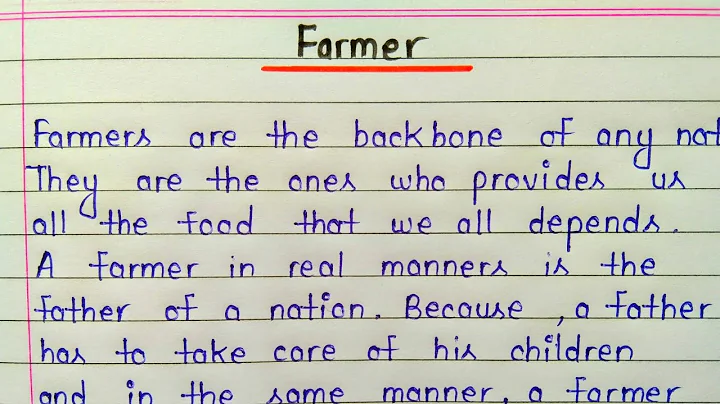 Farmer
Farmers are the backbone of any nat
They are the ones who provides us
all the food that we all depends.
A farmer in real manners is the
father of a nation. Because, a father
has to take care of his children
and in the same manner, a farmer